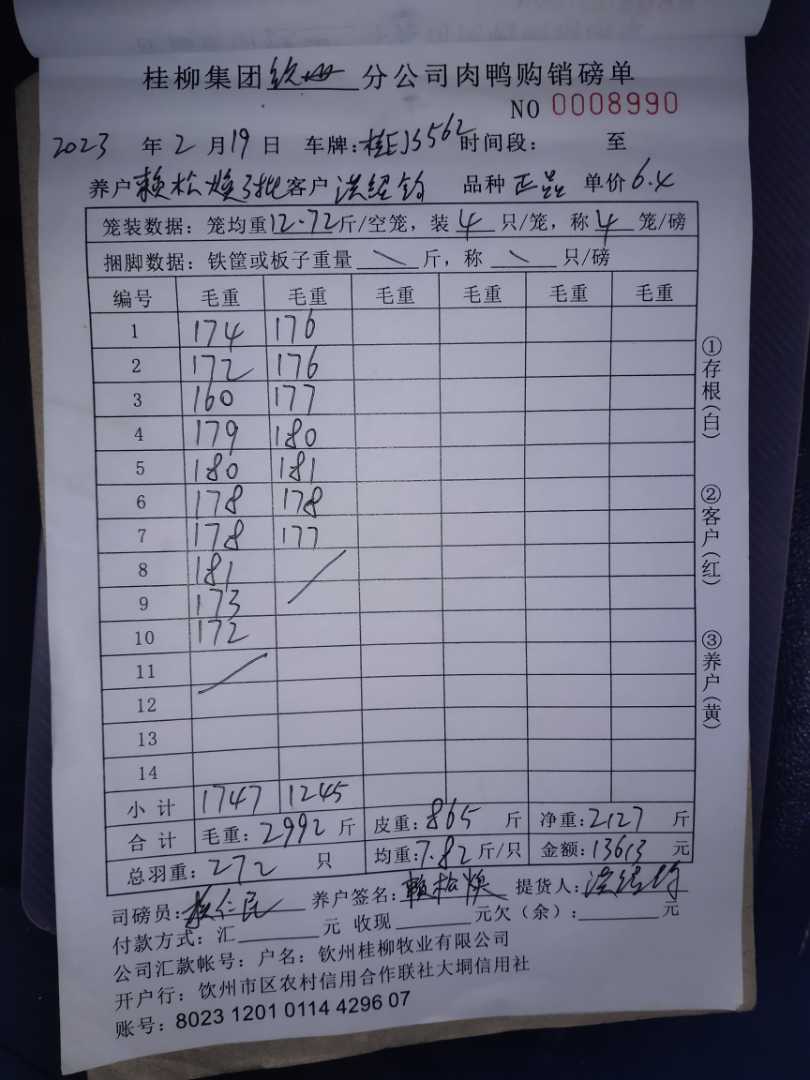 桂柳集团钦州分公司肉鸭购销磅单
NO 0008990
2023 年 2 月 19 日 车牌：桂EJS562 时间段： 至
养户 赖松焕3批 客户 洪绍钧 品种 正品 单价 6.4
笼装数据：笼均重12.72斤/空笼，装 4 只/笼，称 4 笼/磅
捆脚数据：铁筐或板子重量 \ 斤，称 \ 只/磅
编号 毛重 毛重 毛重 毛重 毛重 毛重
1 174 176
2 172 176
3 160 177
4 179 180
5 180 181
6 178 178
7 178 177
8 181
9 173
10 172
11
12
13
14
小计 1747 1245
合计 毛重：2992 斤 皮重：865 斤 净重：2127 斤
总羽重：272 只 均重：7.82 斤/只 金额：13613 元
司磅员： 仁民 养户签名：赖松焕 提货人：洪绍钧
付款方式：汇 元 收现 元欠（余）： 元
公司汇款帐号：户名：钦州桂柳牧业有限公司
开户行：钦州市区农村信用合作联社大垌信用社
账号：8023 1201 0114 4296 07
①存根（白）
②客户（红）
③养户（黄）